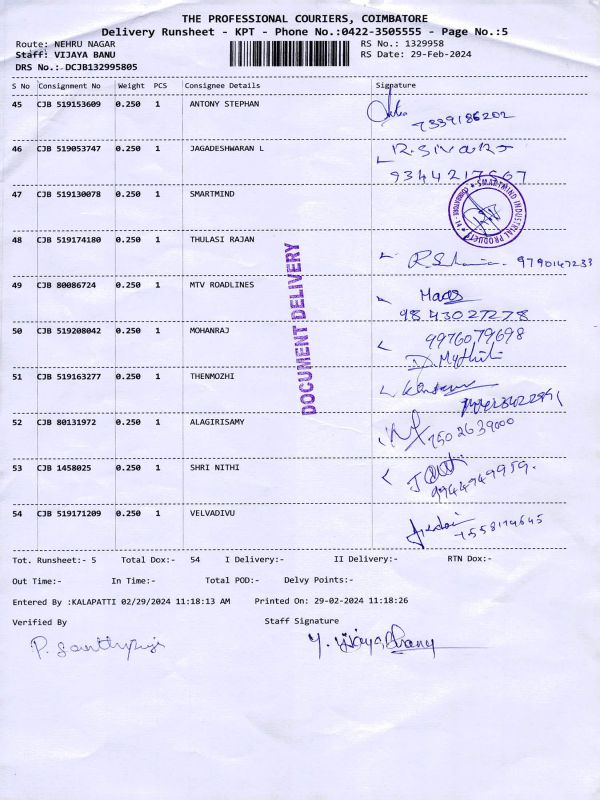 THE PROFESSIONAL COURIERS, COIMBATORE
Delivery Runsheet - KPT - Phone No.:0422-3505555 - Page No.:5
Route: NEHRU NAGAR RS No.: 1329958
Staff: VIJAYA BANU RS Date: 29-Feb-2024
DRS No.:- DCJB132995805
S No Consignment No Weight PCS Consignee Details Signature
45 CJB 519153609 0.250 1 ANTONY STEPHAN
7339186202
46 CJB 519053747 0.250 1 JAGADESHWARAN L R.SIVARJ
47 CJB 519130078 0.250 1 SMARTMIND
SMARTMIND INDUSTRIAL PRODUCTS
48 CJB 519174180 0.250 1 THULASI RAJAN
9790147233
49 CJB 80086724 0.250 1 MTV ROADLINES
9843027278
50 CJB 519208042 0.250 1 MOHANRAJ 9976079698
D. Mythili
51 CJB 519163277 0.250 1 THENMOZHI
52 CJB 80131972 0.250 1 ALAGIRISAMY
7502639000
53 CJB 1458025 0.250 1 SHRI NITHI
9944949959.
54 CJB 519171209 0.250 1 VELVADIVU
7558114645
DOCUMENT DELIVERY
Tot. Runsheet:- 5 Total Dox:- 54 I Delivery:- II Delivery:- RTN Dox:-
Out Time:- In Time:- Total POD:- Delvy Points:-
Entered By :KALAPATTI 02/29/2024 11:18:13 AM Printed On: 29-02-2024 11:18:26
Verified By Staff Signature